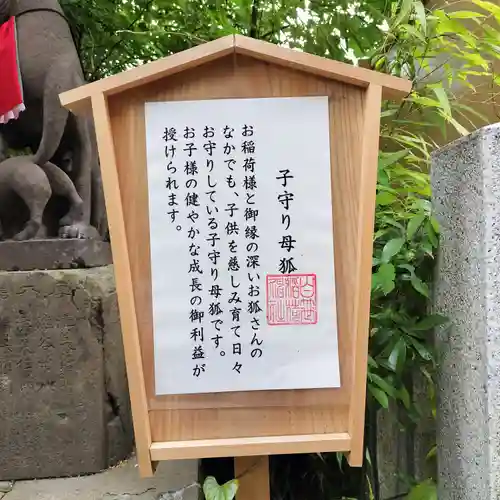 子守り母狐
お稲荷様と御縁の深いお狐さんの
なかでも、子供を慈しみ育て日々
お守りしている子守り母狐です。
お子様の健やかな成長の御利益が
授けられます。